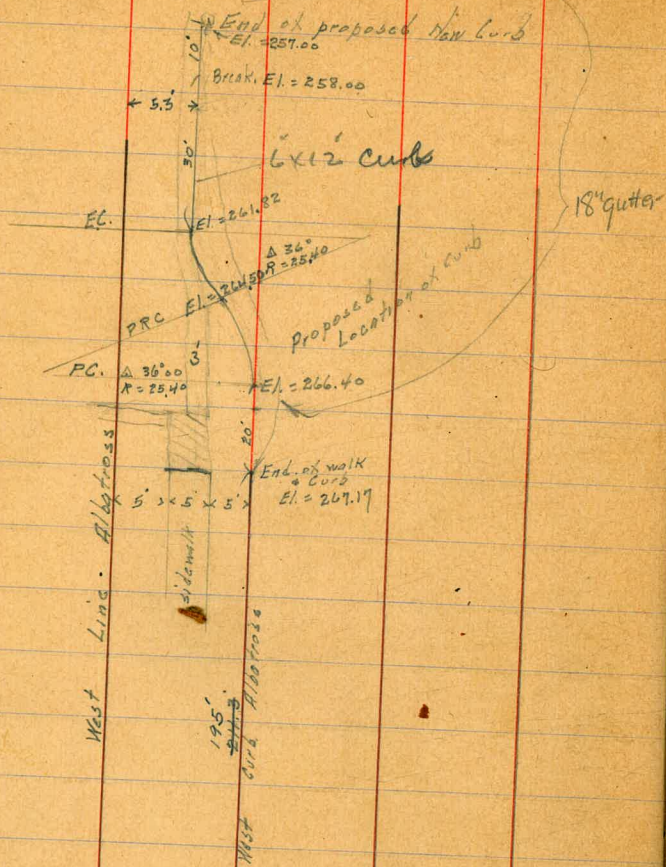 End of proposed New Curb
El. = 257.00
10'
Break. El. = 258.00
5.3'
30'
6"x12" Curb
El = 261.82
E.C.
18" gutter
Δ 36°
R = 25.40
El = 264.50
PRC
Proposed
Location of Curb
3'
P.C.
Δ 36°00
R = 25.40
El. = 266.40
20'
End of walk
& Curb
El. = 267.17
5' 5' 5'
sidewalk
West Line Albatross
195'
West Curb Albatross